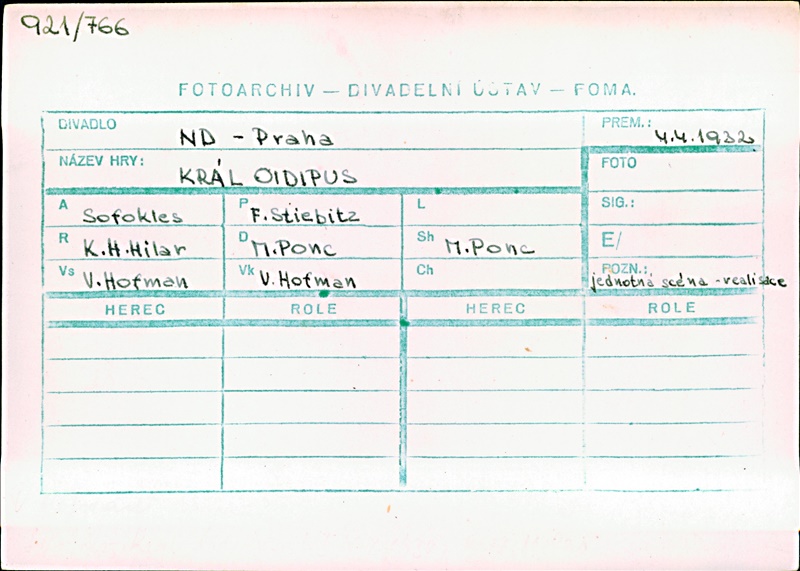 921/766
FOTOARCHIV — DIVADELNÍ ÚSTAV — FOMA.
DIVADLO ND - Praha PREM.: 4.4.1932
NÁZEV HRY: KRÁL OIDIPUS FOTO
A Sofokles P F. Stiebitz L SIG.:
R K.H. Hilar D M. Ponc Sh M. Ponc E/
Vs V. Hofman Vk V. Hofman Ch POZN.: jednotná scéna - realisace
HEREC ROLE HEREC ROLE